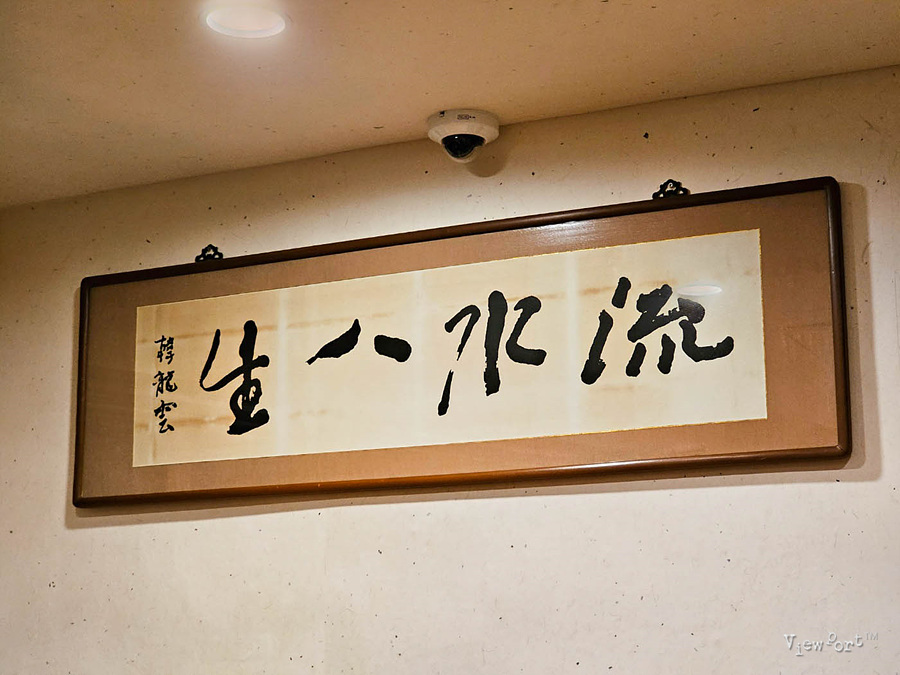 流水人生
韓龍雲
Viewport™